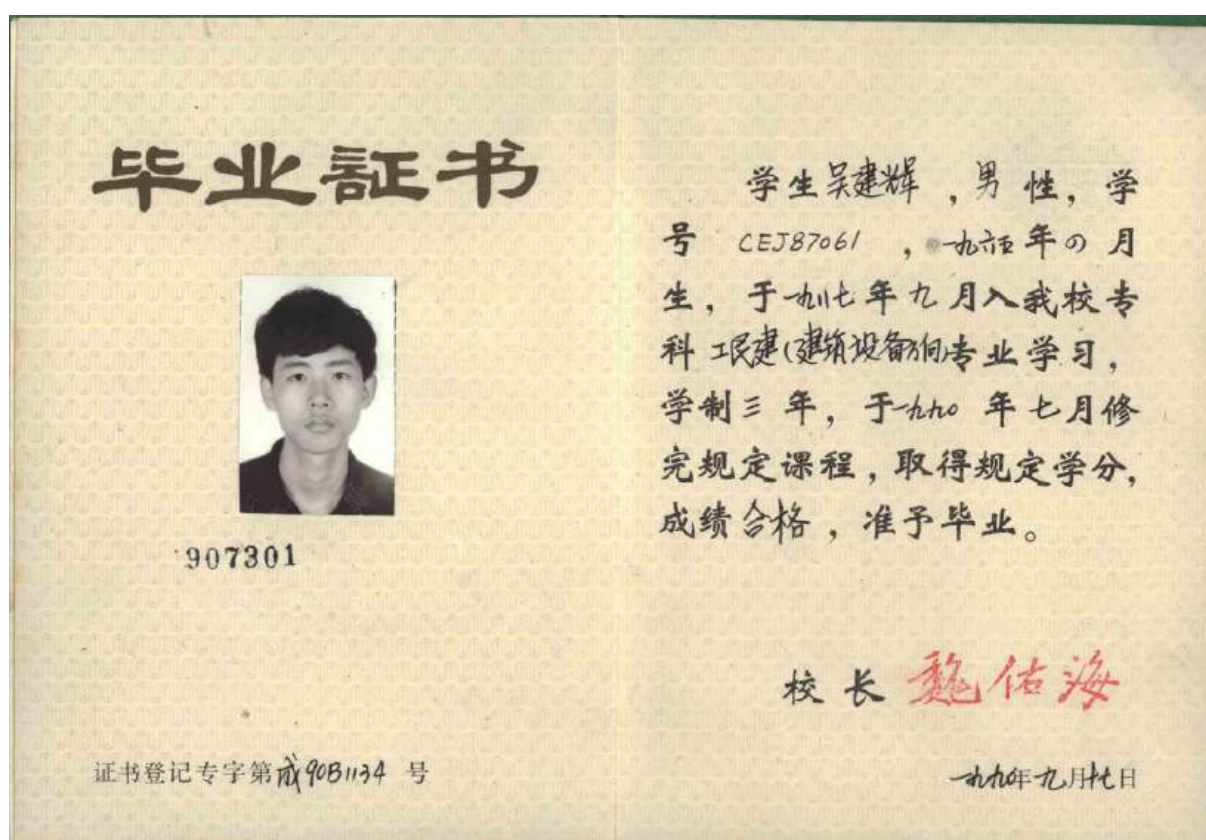 毕业証书
907301
证书登记专字第成90B1134 号
学生吴建辉，男性，学
号 CEJ87061 ，一九六五年の月
生，于一九八七年九月入我校专
科工民建(建筑设备方向)专业学习，
学制三年，于一九九〇年七月修
完规定课程，取得规定学分，
成绩合格，准予毕业。
校长 魏佑海
一九九〇年九月十七日